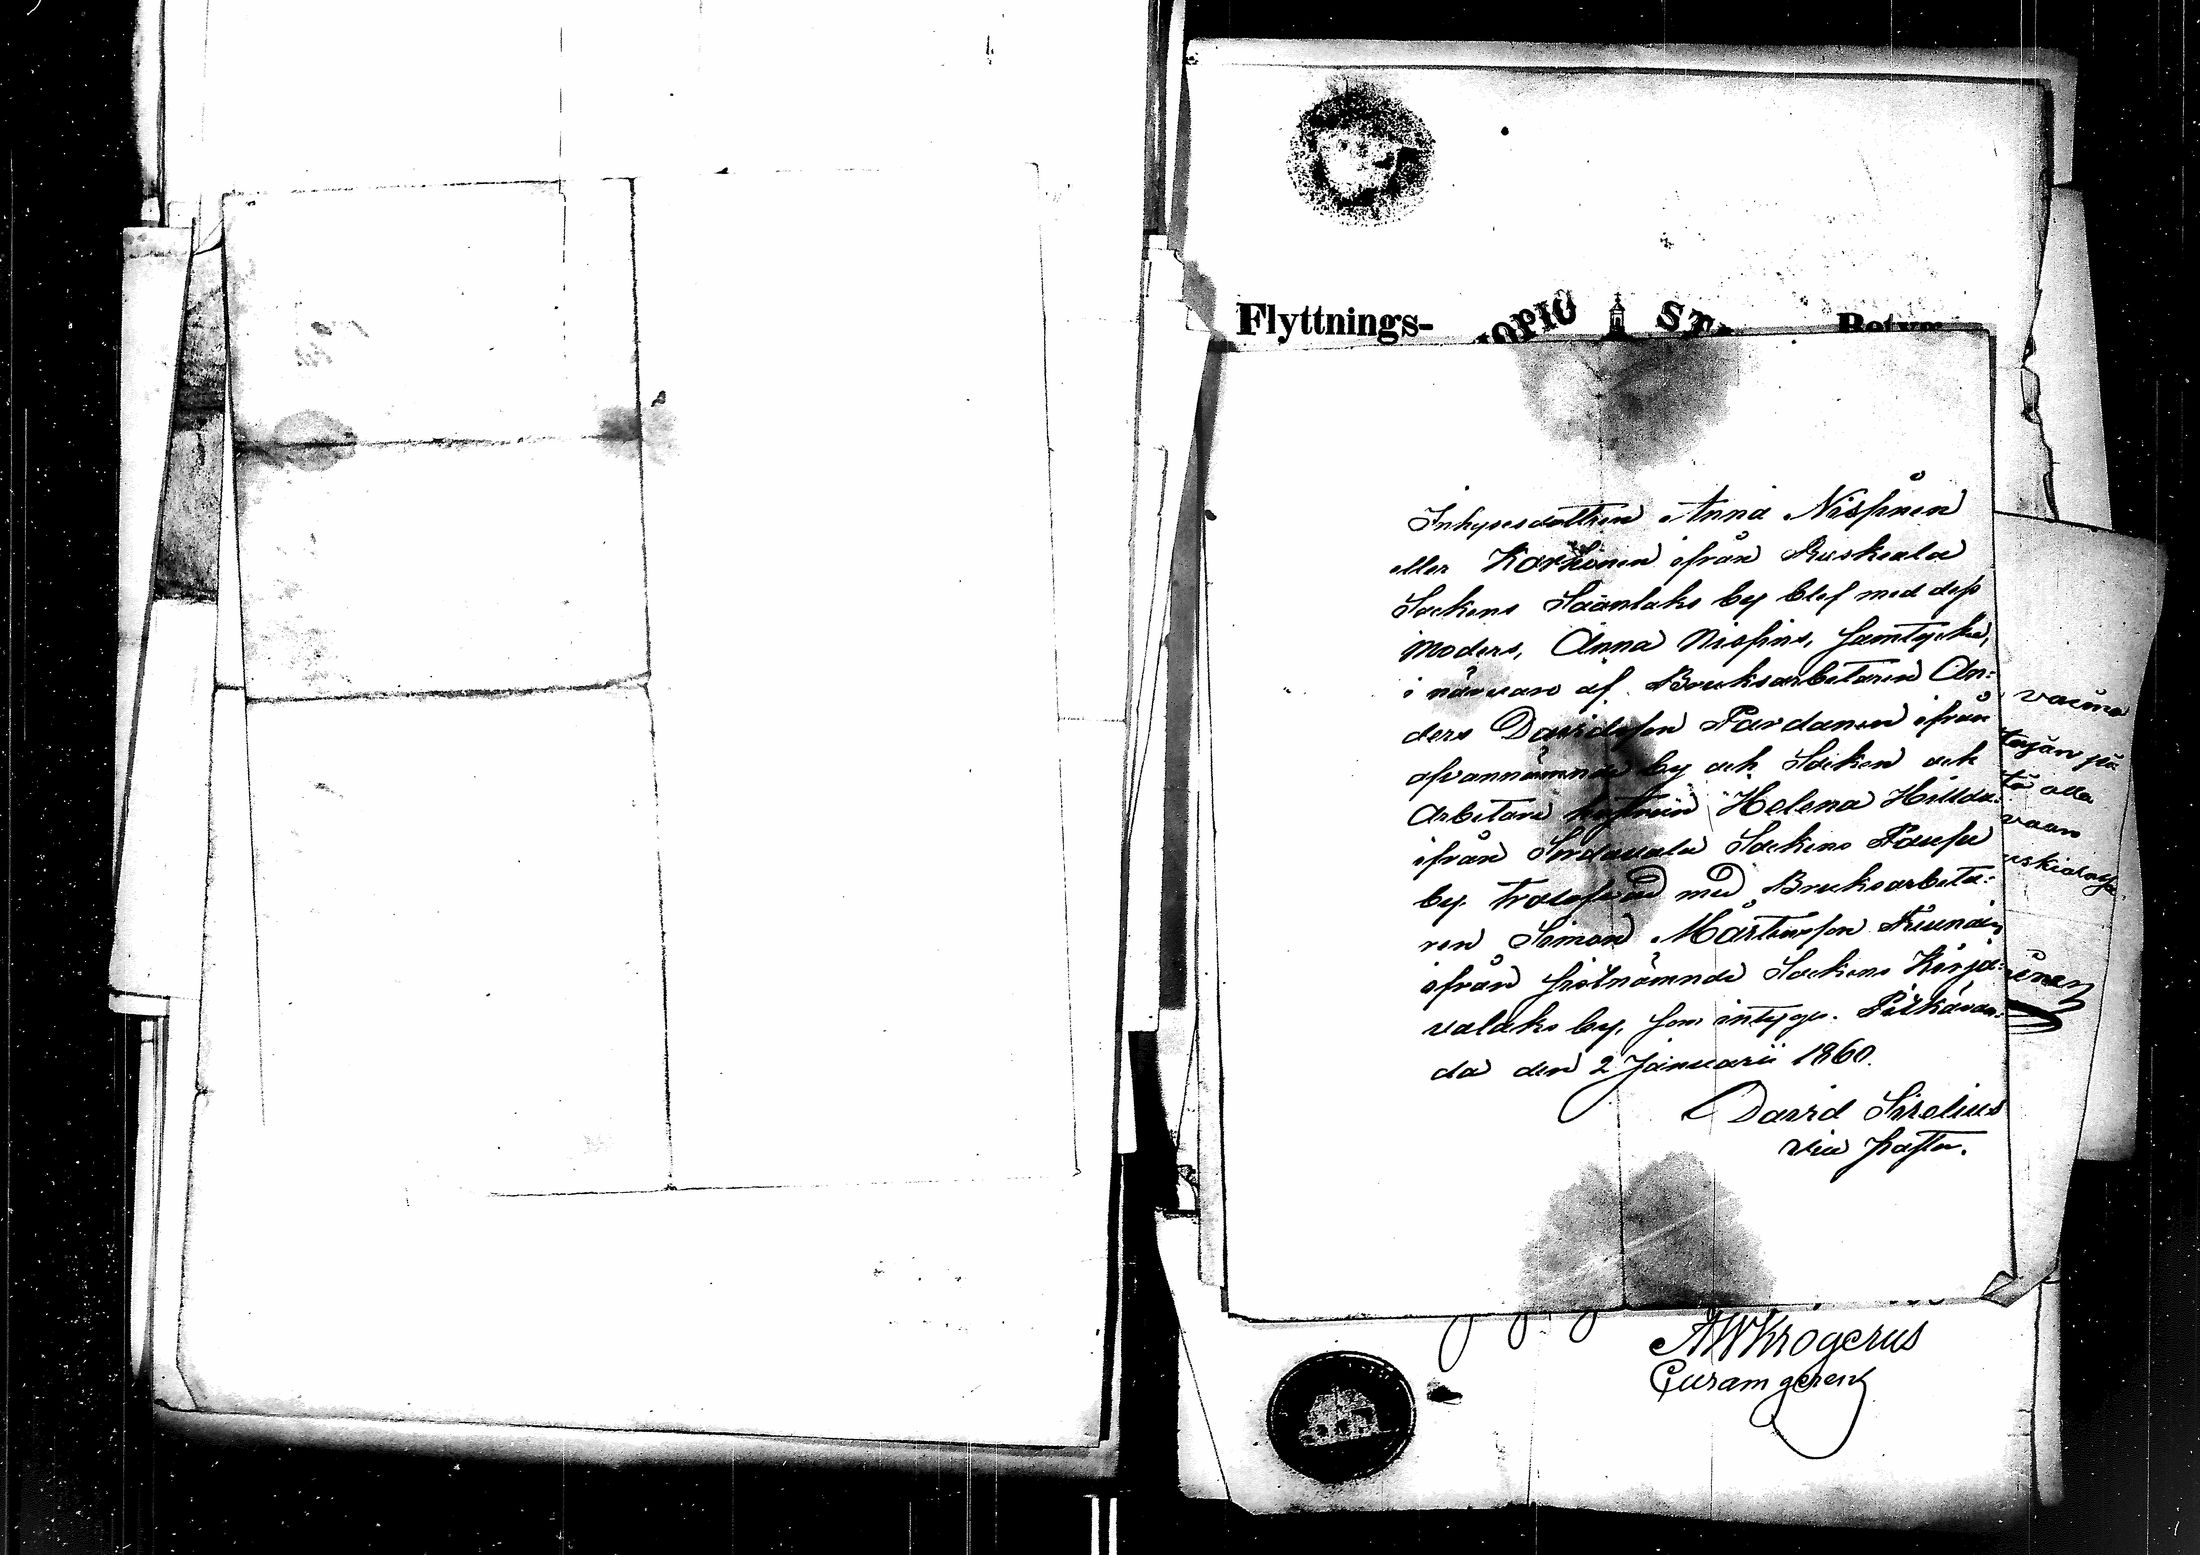 Flyttnings-
UOPIO ST
Inhysesdottren Anna Nispinen
eller Karhonen ifrån Ruskeala
Sockens Säänlaks by blef med dess
moders, Anna Nispins, samtycke,
i närvaro af Bruksarbetaren An:
ders Davidsson Pardanen ifrån
ofvannämnde by och Socken och
Arbetare hustrun Helena Hilldu:
ifrån Sordavala Sockens
by, trolofvad med Bruksarbeta:
ren Simon Mårtensson
ifrån sistnämnde Sockens Kirja:
valaks by, som intygar. Pitkäran:
da den 2 Januarii 1860.
David Sirelius
vice pastor.
tö olla
vaan
AWKrogerus